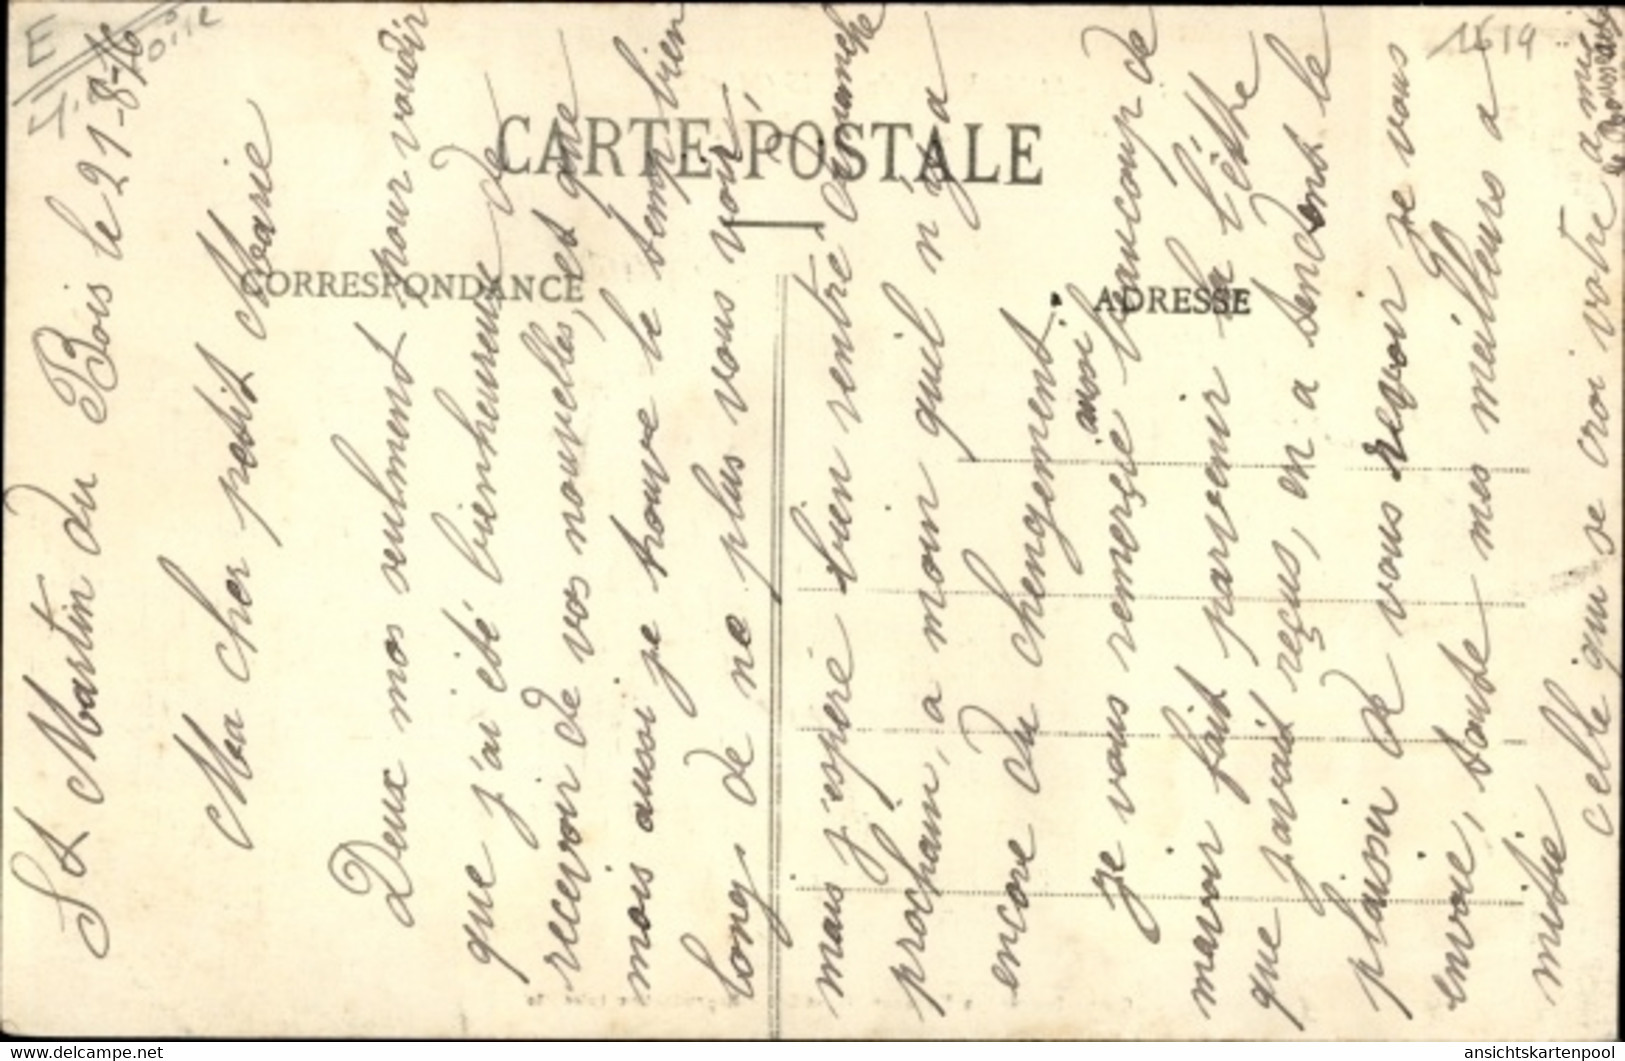 E
1619
CARTE POSTALE
CORRESPONDANCE
ADRESSE
St Martin du Bois le 21-8-16
Ma cher petit Marie
Deux mos seulment pour voudir
que j'ai été bienheureuse de
recevoir de vos nouvelles, et que
mois aussi je trouve le temp bien
long de ne plus vous voir,
mais j'espère bien rentré dimanche
prochain, a moin quil n'y a
encore du chengement.
je vous remerçie aussi beaucoup de
mavoir fait parvenir la lètre
que javait reçus, en a tendent le
plaisir de vous revoir je vous
envoie, toute mes meilleurs a
mitié
celle qui se croi votre amie
www.delcampe.net
ansichtskartenpool